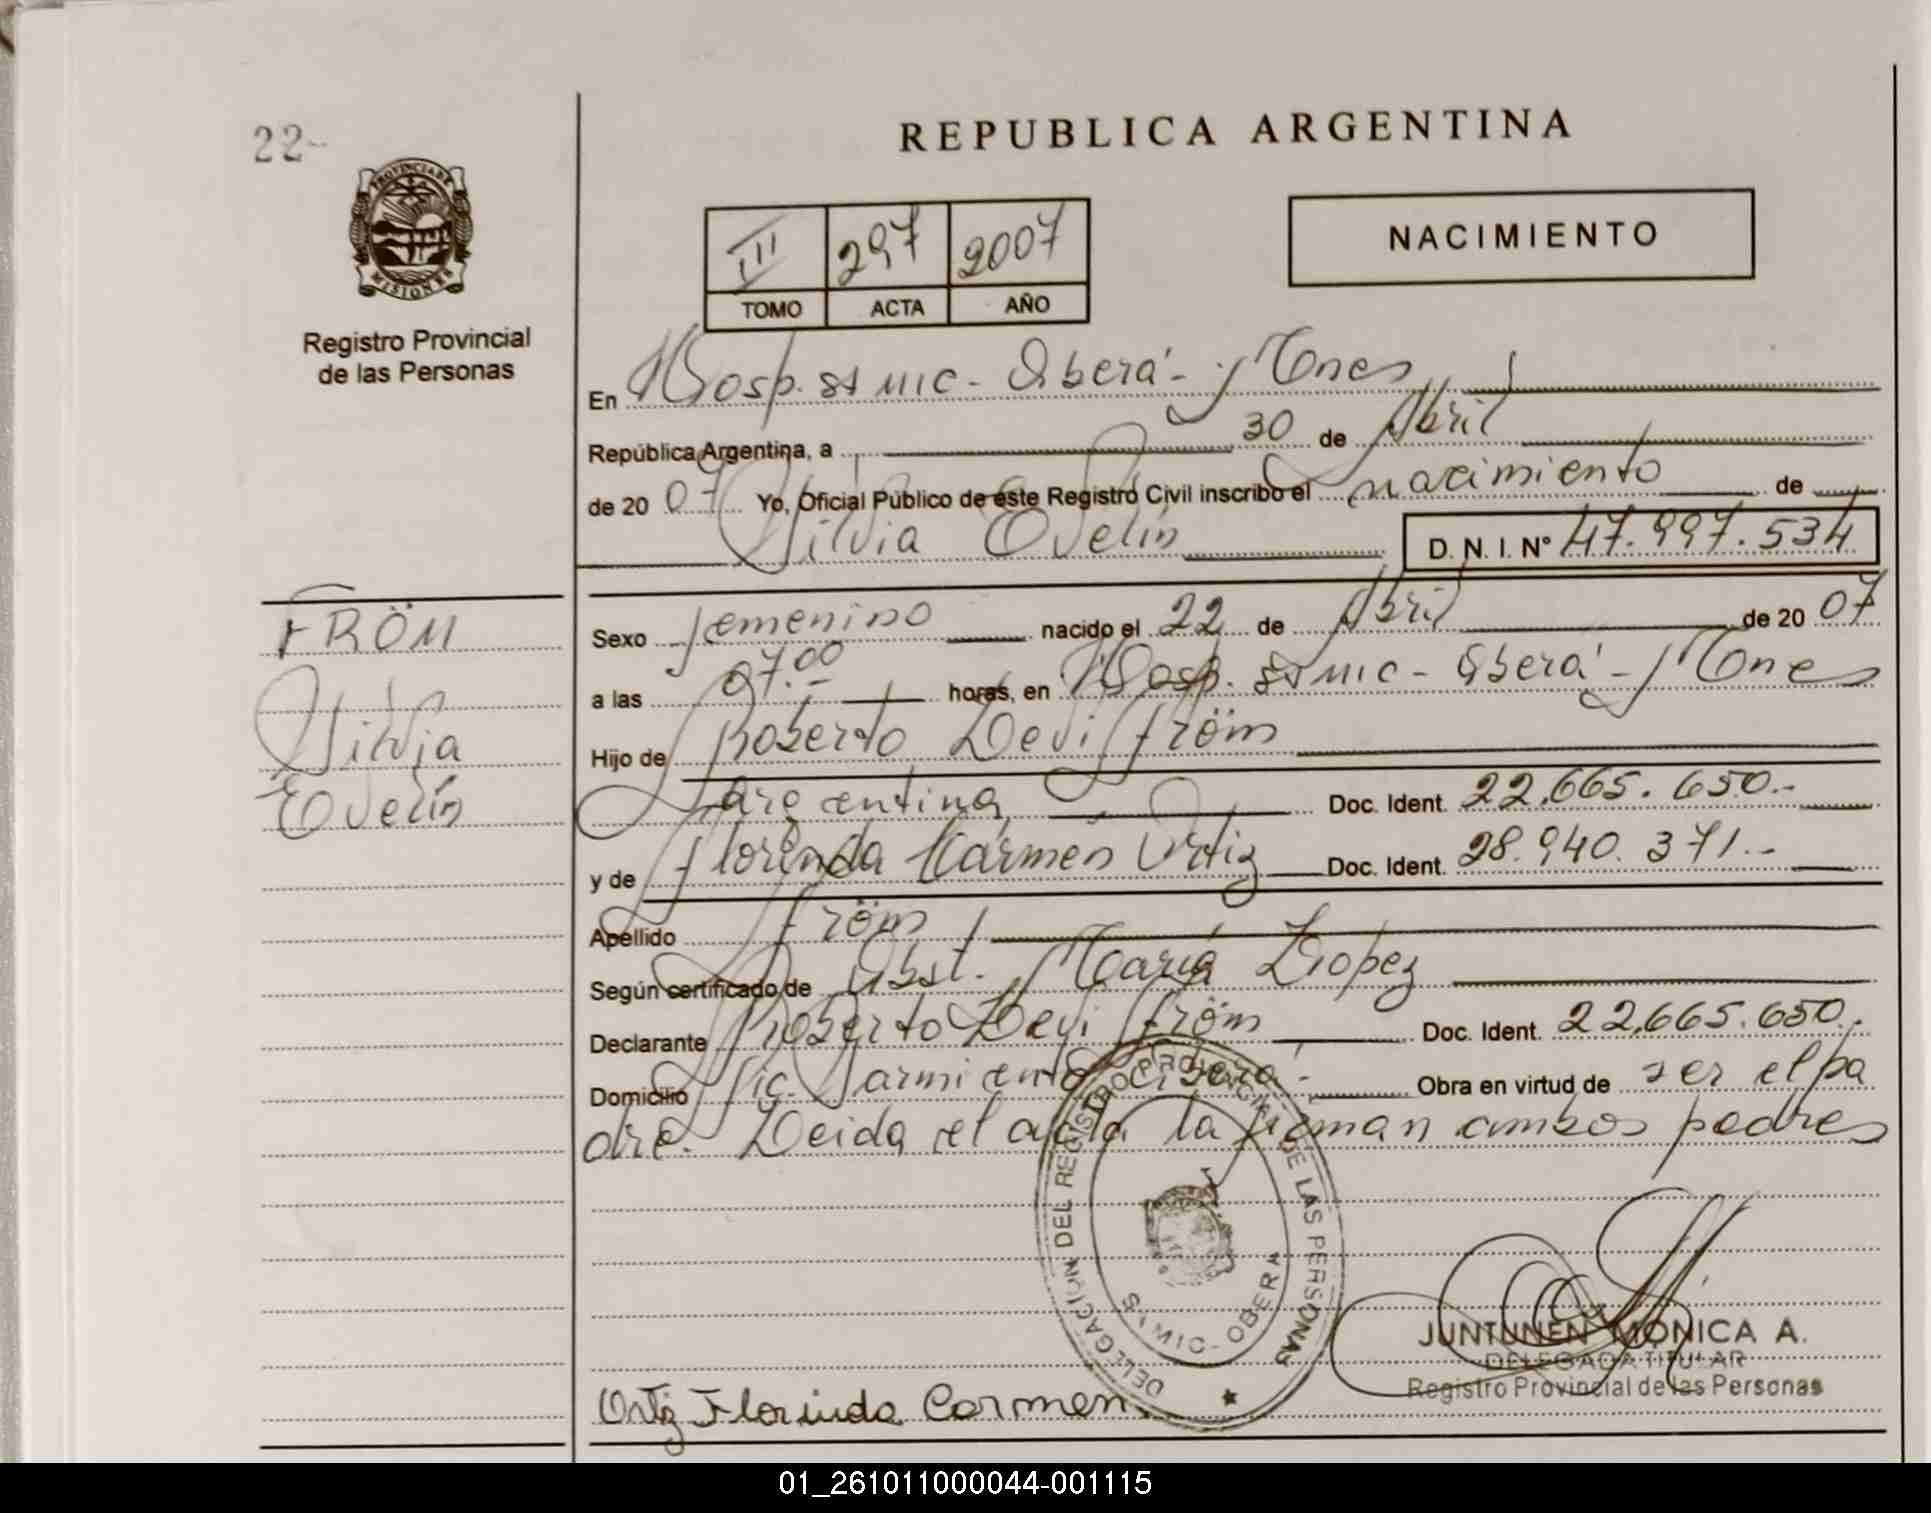 REPUBLICA ARGENTINA
22-
PROVINCIA DE MISIONES
Registro Provincial
de las Personas
III 297 2007
TOMO ACTA AÑO
NACIMIENTO
En Hosp. SAMIC - Oberá - Mnes
República Argentina, a 30 de Abril
de 20 07 Yo, Oficial Público de este Registro Civil inscribo el nacimiento de
Silvia Evelin D. N. I. N° 47.997.534
FRÖM
Silvia
Evelin
Sexo femenino nacido el 22 de Abril de 20 07
a las 07.00 horas, en Hosp. SAMIC - Oberá - Mnes
Hijo de Roberto Levi Fröm
argentina Doc. Ident. 22.665.650.-
y de Florinda Carmen Ortiz Doc. Ident. 28.940.371.-
Apellido Fröm
Según certificado de Obst. María Lopez
Declarante Roberto Levi Fröm Doc. Ident. 22.665.650.-
Domicilio Sarmiento Oberá - Obra en virtud de ser el pa
dre. Leida el acta la firman ambos padres
DELEGACION DEL REGISTRO PROVINCIAL DE LAS PERSONAS
SAMIC - OBERA
JUNTUNEN MONICA A.
DELEGADA TITULAR
Registro Provincial de las Personas
Ortiz Florinda Carmen
01_261011000044-001115